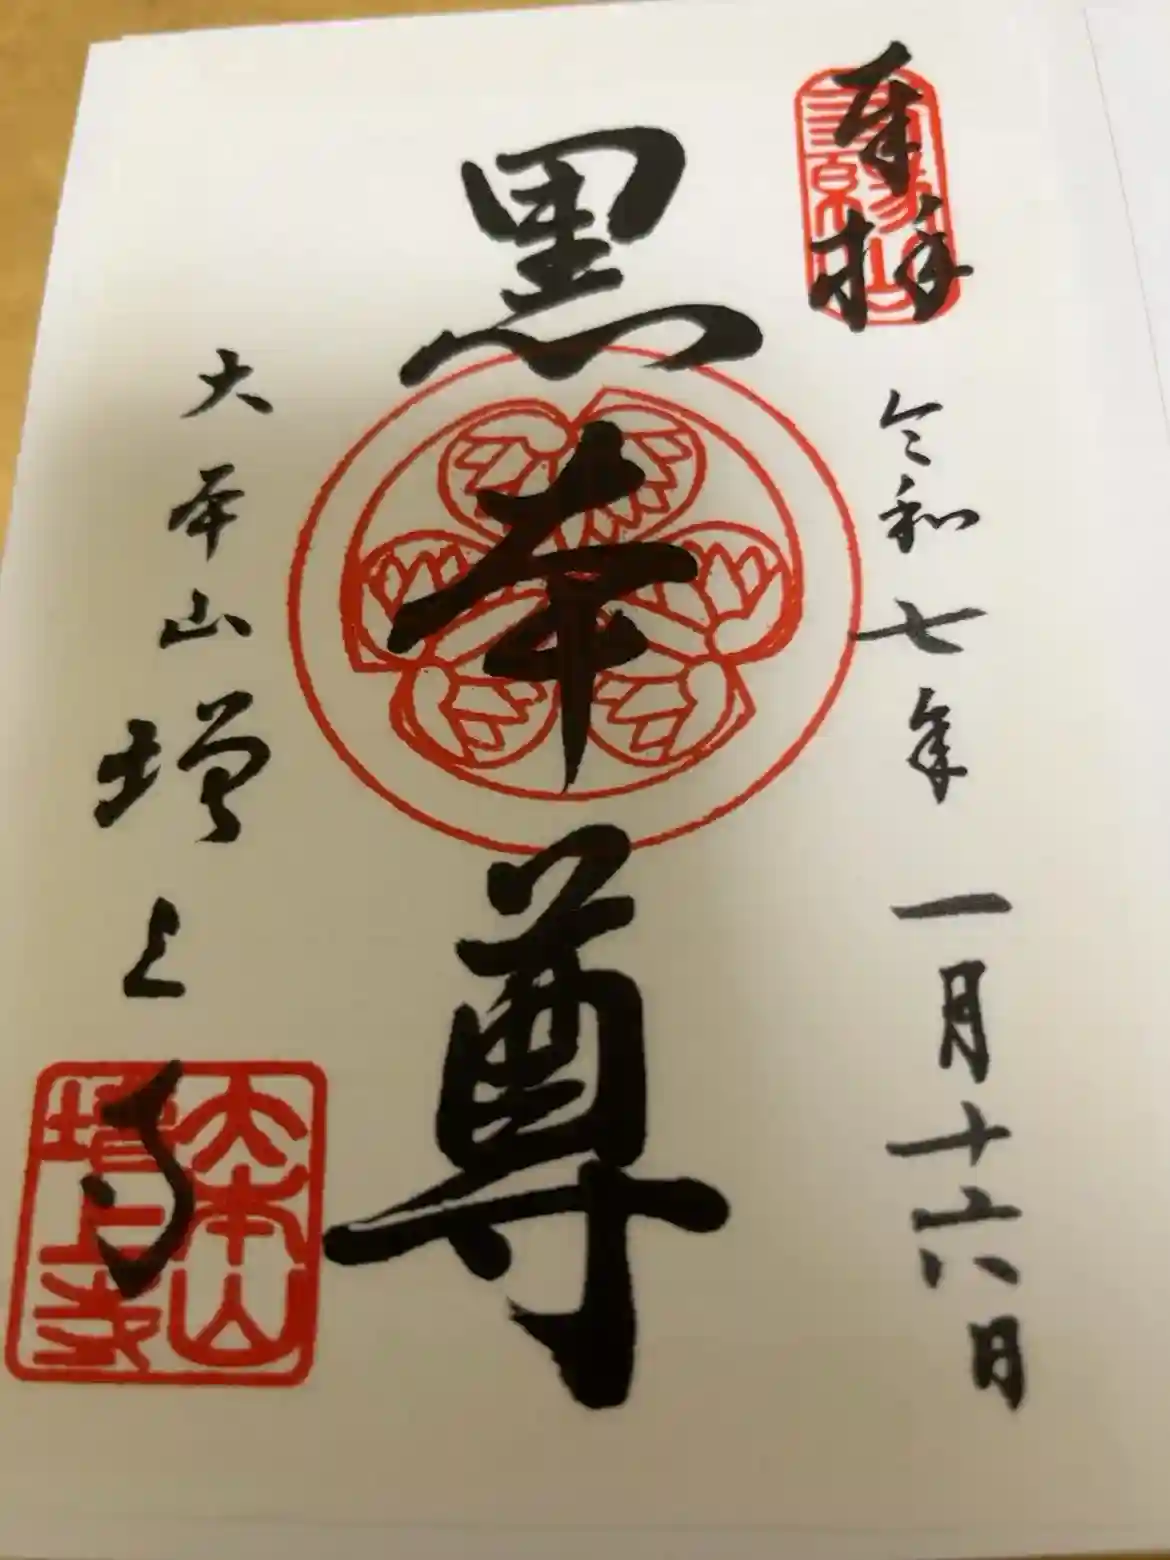 奉拝
三縁山
令和七年一月十六日
黒本尊
大本山増上寺
大本山
増上寺